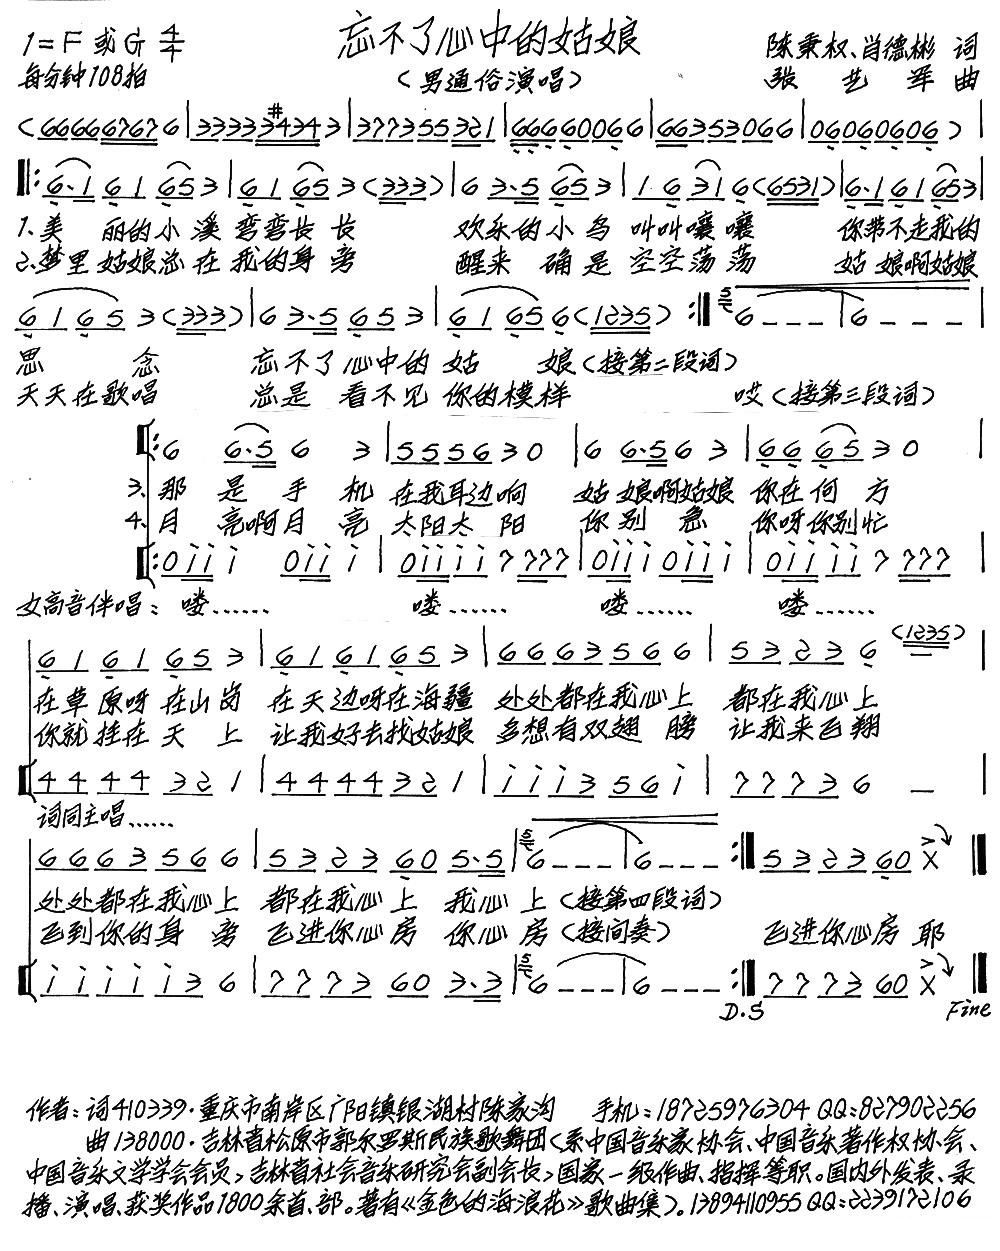 忘不了心中的姑娘
1=F或G 4/4
陈秉权、肖德彬 词
每分钟108拍
（男通俗演唱）
张艺军 曲
（66666767 6 | 3333 3#434 3 | 377355 321 | 66660066 | 66353066 | 06060606 ）|
‖: 6·1 61 65 3 | 61 65 3（333）| 6 3·5 65 3 | 16 31 6（6531）| 6·1 61 65 3 |
1.美 丽的小溪弯弯长长 欢乐的小鸟叫叫嚷嚷 你带不走我的
2.梦里姑娘总在我的身旁 醒来确是空空荡荡 姑娘啊姑娘
61 65 3（333）| 6 3·5 65 3 | 61 65 6（1235）:‖ 6 - - - | 6 - - - |
思 念 忘不了心中的姑 娘（接第二段词）
天天在歌唱 总是看不见你的模样 哎（接第三段词）
‖: 6 6·5 6 3 | 5556 30 | 6 6·5 6 3 | 66 65 30 |
3.那是手机在我耳边响 姑娘啊姑娘你在何方
4.月亮啊月亮太阳太阳 你别急 你呀你别忙
‖: 0iii i 0iii i | 0iiii i 7 777 | 0iii i 0iii i | 0iiii i 7 777 |
女高音伴唱：喽…… 喽…… 喽…… 喽……
61 61 65 3 | 61 61 65 3 | 6663 56 6 | 53 23 6（1235）|
在草原呀在山岗 在天边呀在海疆 处处都在我心上 都在我心上
你就挂在天上 让我好去找姑娘 多想有双翅膀 让我来飞翔
44 44 32 1 | 44 44 32 1 | ii i3 56 i | 77 73 6 - |
词同主唱……
6663 56 6 | 53 23 60 5·5 | 6 - - - | 6 - - - :‖ 53 23 60 X ‖
处处都在我心上 都在我心上 我心上（接第四段词）
飞到你的身旁 飞进你心房 你心房（接间奏） 飞进你心房 耶
ii ii i3 6 | 77 73 60 3·3 | 6 - - - | 6 - - - :‖ 77 73 60 X ‖
D.S Fine
作者：词410339·重庆市南岸区广阳镇银湖村陈家沟 手机：18725976304 QQ：827902256
曲138000·吉林省松原市郭尔罗斯民族歌舞团（系中国音乐家协会、中国音乐著作权协会、
中国音乐文学学会会员，吉林省社会音乐研究会副会长，国家一级作曲、指挥等职。国内外发表、录
播、演唱、获奖作品1800余首、部。著有《金色的海浪花》歌曲集）。13894110955 QQ：2239172106